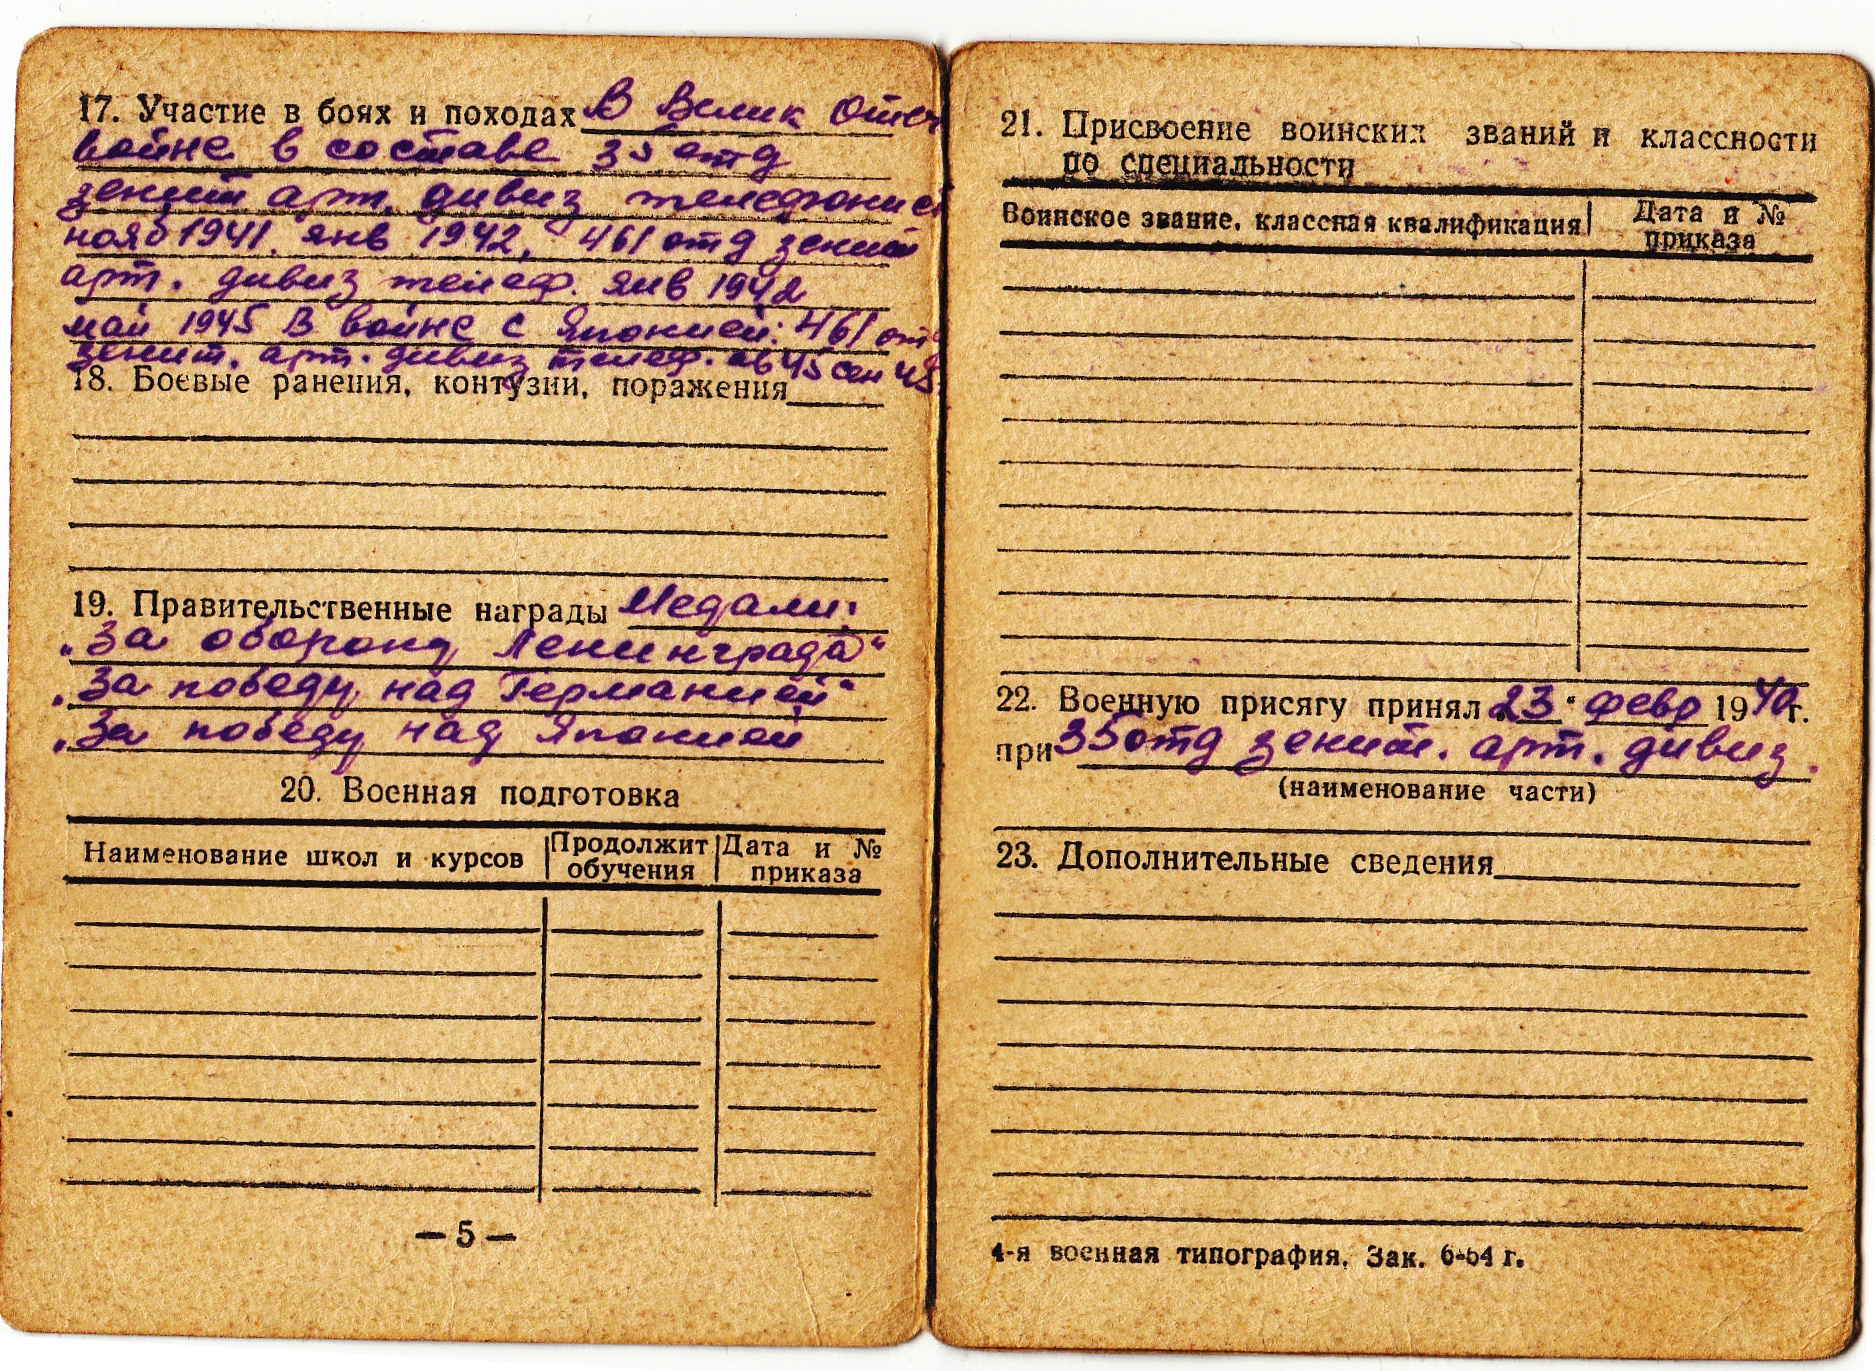 17. Участие в боях и походах В Велик Отеч
войне в составе 35 отд
зенит арт. дивиз телефонист
нояб 1941. янв 1942, 461 отд зенит
арт. дивиз телеф. янв 1942
май 1945 В войне с Японией: 461 отд
зенит. арт. дивиз телеф. ав 45 сен 45.
18. Боевые ранения, контузии, поражения
19. Правительственные награды Медали:
„За оборону Ленинграда“
„За победу над Германией“
„За победу над Японией
20. Военная подготовка
Наименование школ и курсов Продолжит обучения Дата и № приказа
— 5 —
21. Присвоение воинских званий и классности
по специальности
Воинское звание, классная квалификация Дата и № приказа
22. Военную присягу принял „23“ февр 1940г.
при 35 отд зенит. арт. дивиз.
(наименование части)
23. Дополнительные сведения
4-я военная типография. Зак. 6-54 г.